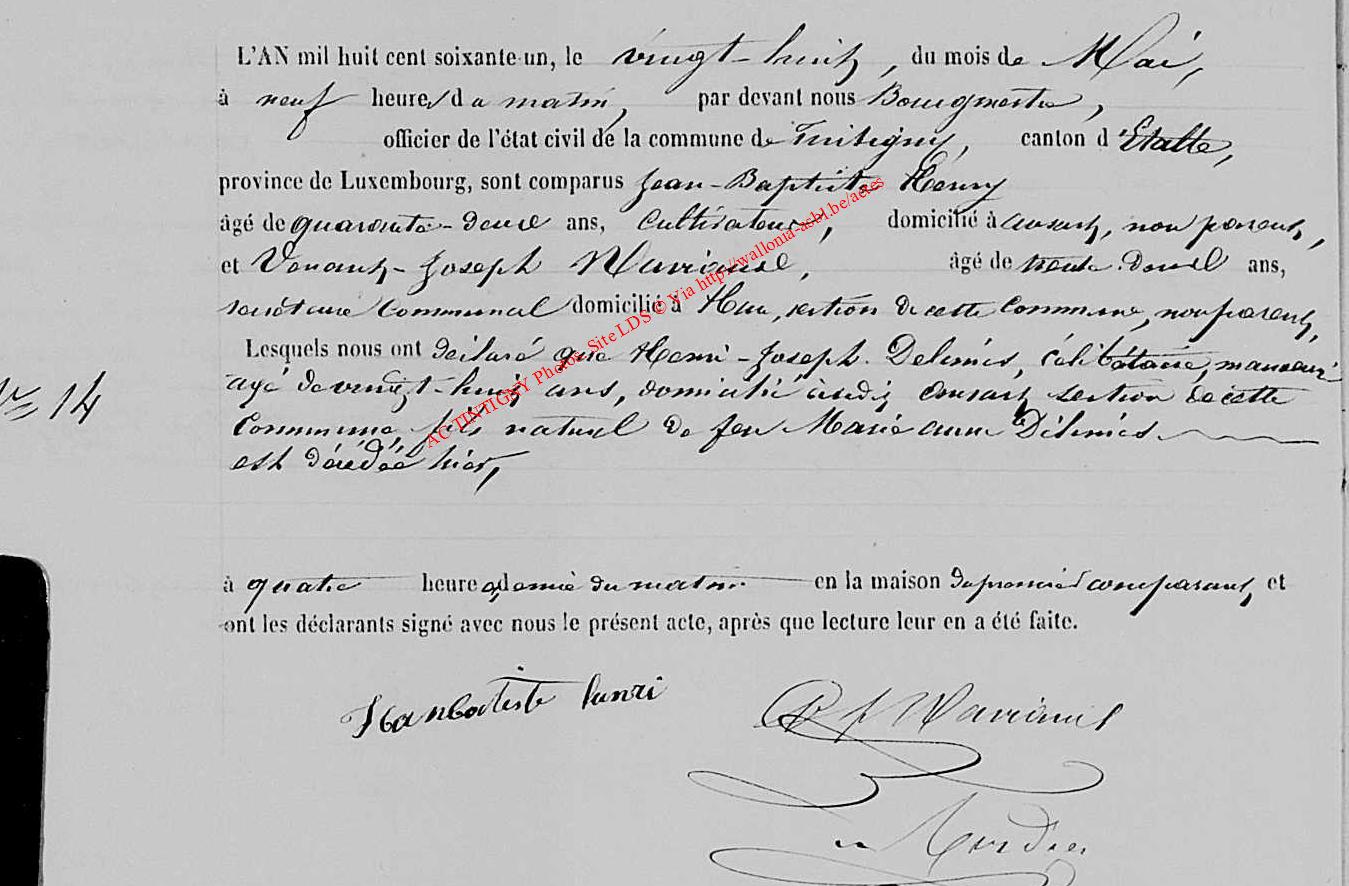 L'AN mil huit cent soixante-un, le vingt-huit, du mois de Mai,
à neuf heures du matin, par devant nous Bourgmestre,
officier de l'état civil de la commune de Tintigny, canton d'Etalle,
province de Luxembourg, sont comparus Jean-Baptiste Henry
âgé de quarante-deux ans, cultivateur, domicilié à ansart, non parent,
et Venant-Joseph Mariamé, âgé de trente-deux ans,
secrétaire communal domicilié à Han, section de cette commune, non parent,
Lesquels nous ont déclaré que Henri-Joseph Delmès, célibataire, manœuvre
agé de vingt-huit ans, domicilié audit ansart section de cette
N° 14
Commune fils naturel de feu Marie anne Délmès
est décédée hier,
à quatre heure et demie du matin en la maison du premier comparant, et
ont les déclarants signé avec nous le présent acte, après que lecture leur en a été faite.
Jeanbatiste hanri
ACTINTIGNY Photos Site LDS © Via http://wallonia-asbl.be/actes